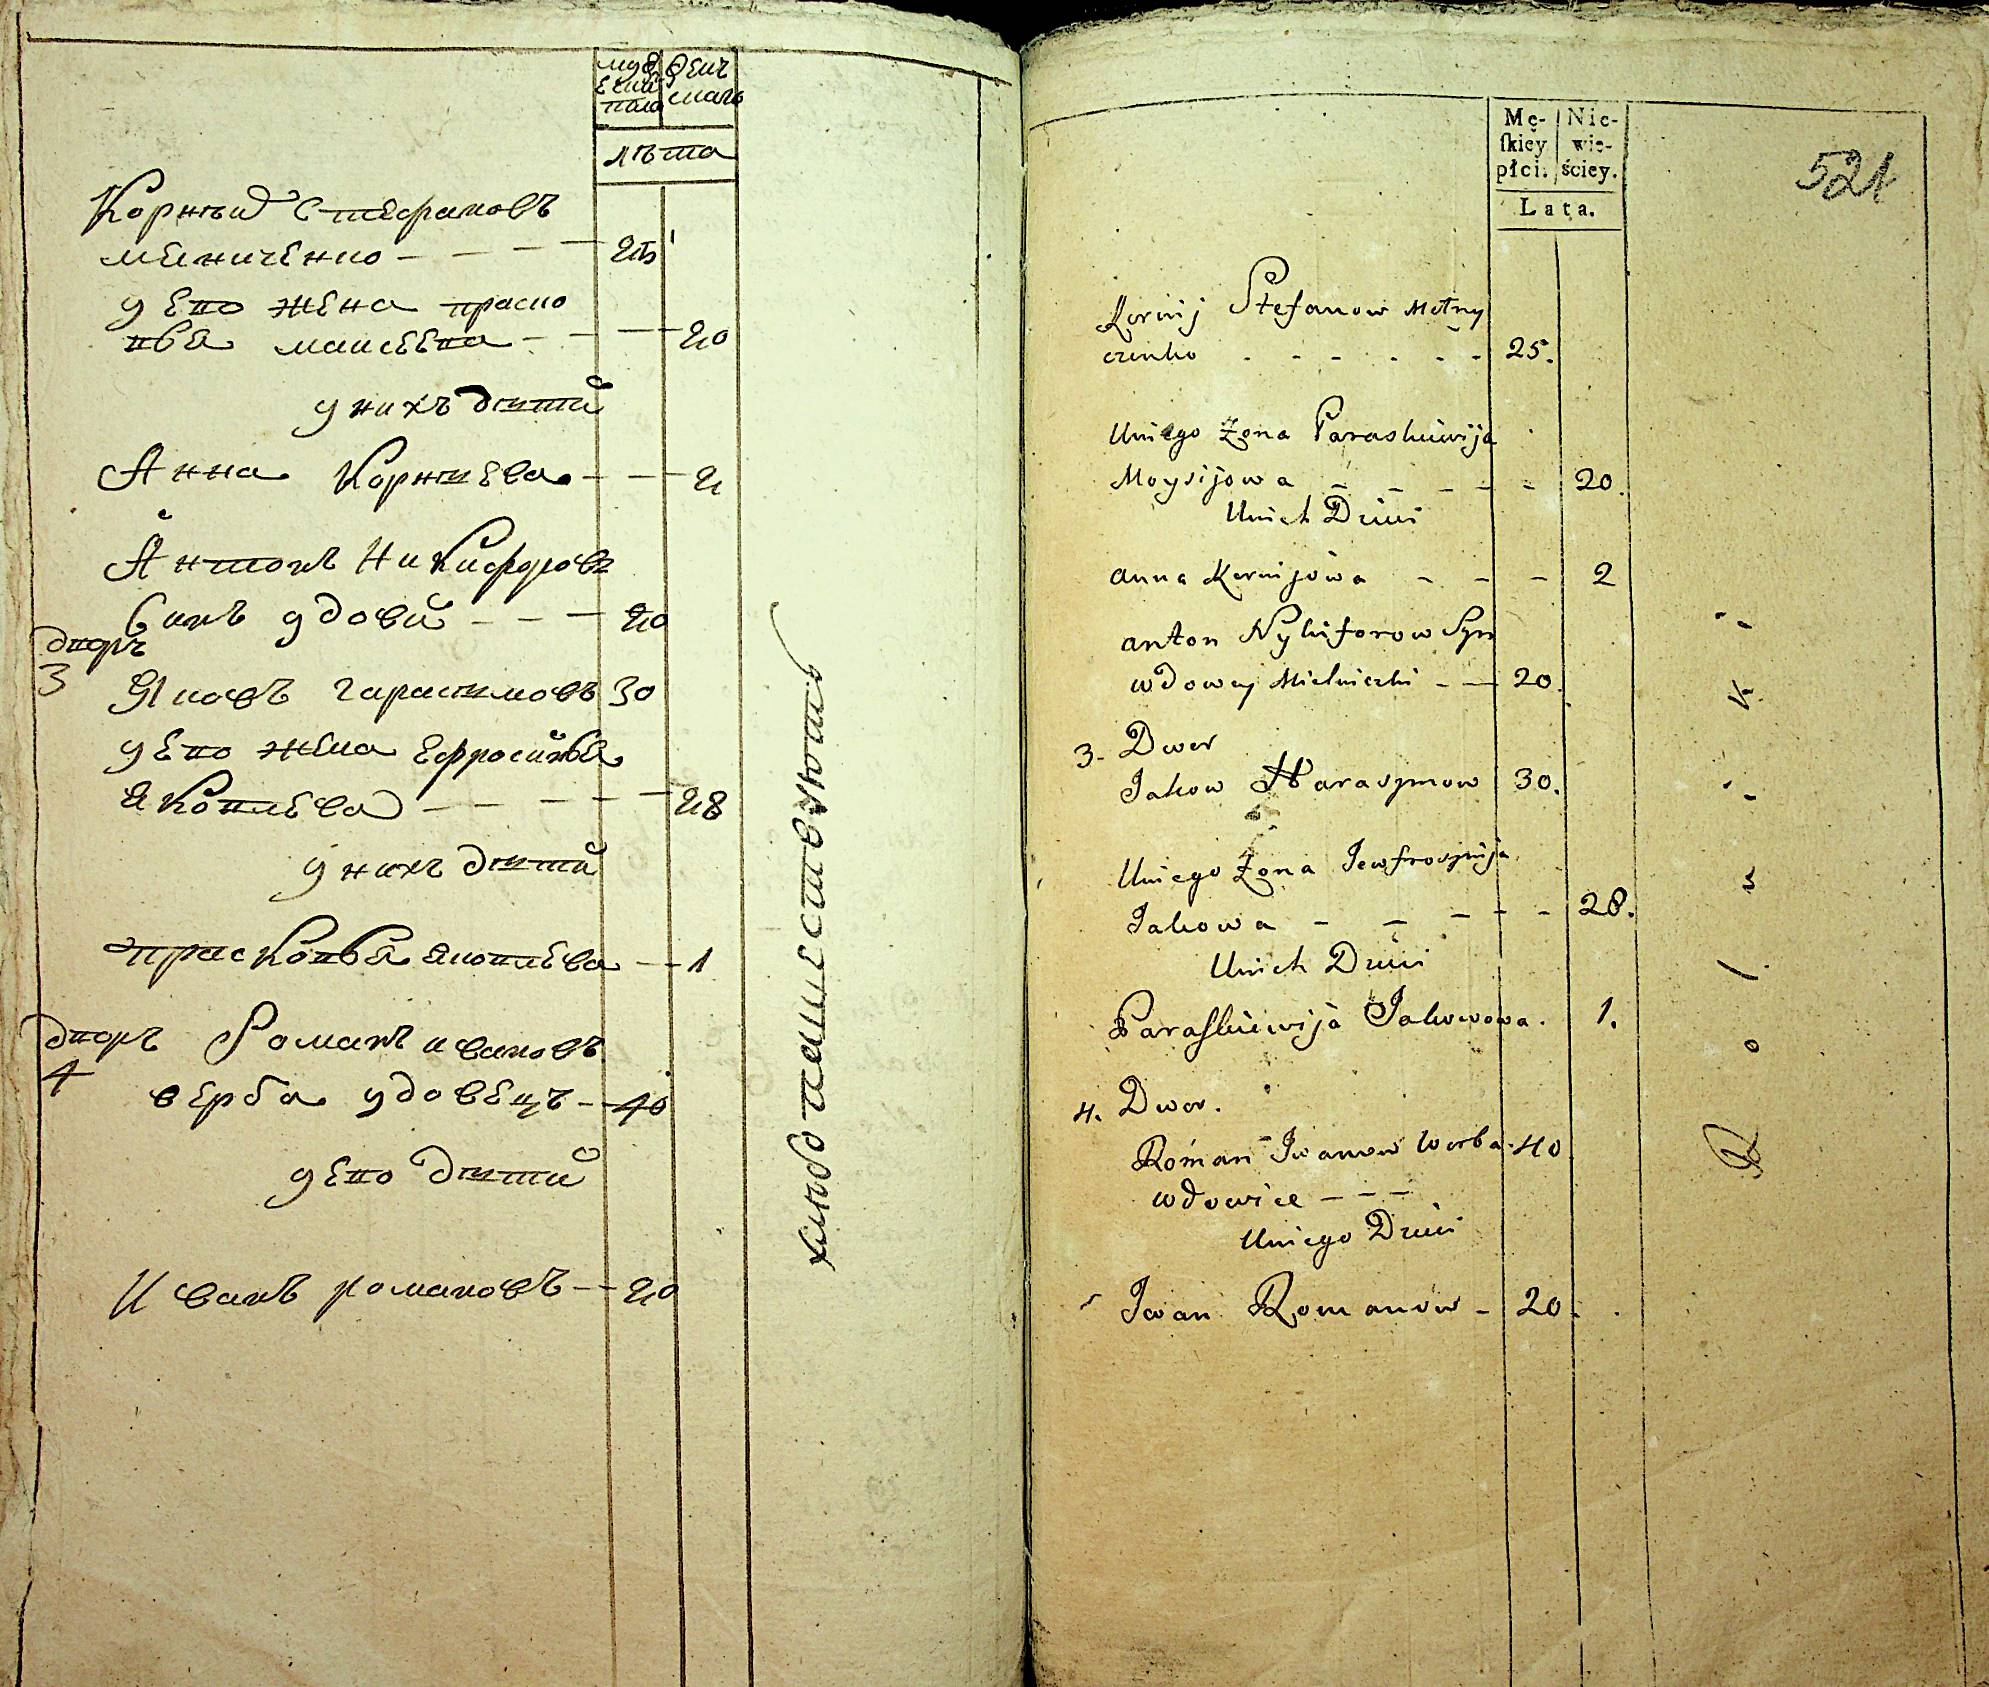 мужеска пола
женска
лѣта
Корнѣй Стефановъ
мелниченко - - - 25
у его жена праско
вья маисеева - - - 20
у нихъ дѣтѣй
Анна Корнѣева - - - 2
Антонъ Никифоровъ
Синъ удовий - - - 20
дворъ
3 Яковъ гарасимовъ 30
у его жена Ефросинья
Яковлева - - - - 28
у нихъ дѣтѣй
прасковья яковлева - - 1
дворъ Романъ ивановъ
4 верба удовецъ - - 40
у его дѣтѣй
Иванъ романовъ - - 20
хлѣбопашествуютъ
Mę-
ſkiey
płci.
Nie-
wie-
ściey.
Lata.
521
Kornij Stefanow Melny
czenko - - - - - 25.
Uniego Żona Paraskiewija
Moysijowa - - - - - 20.
Unich Dzieci
anna Kornijowa - - - 2
anton Nykiforow Syn
wdowey Mielniczki - - 20.
3. Dwor
Jakow Harasymow 30.
Uniego Żona Jewfrosynija
Jakowa - - - - - 28.
Unich Dzieci
Paraſkiewija Jakowowa. 1.
4. Dwor.
Roman Iwanow Werba. 40
wdowiec - - -
Uniego Dzieci
Iwan Romanow - 20.
Rolnik